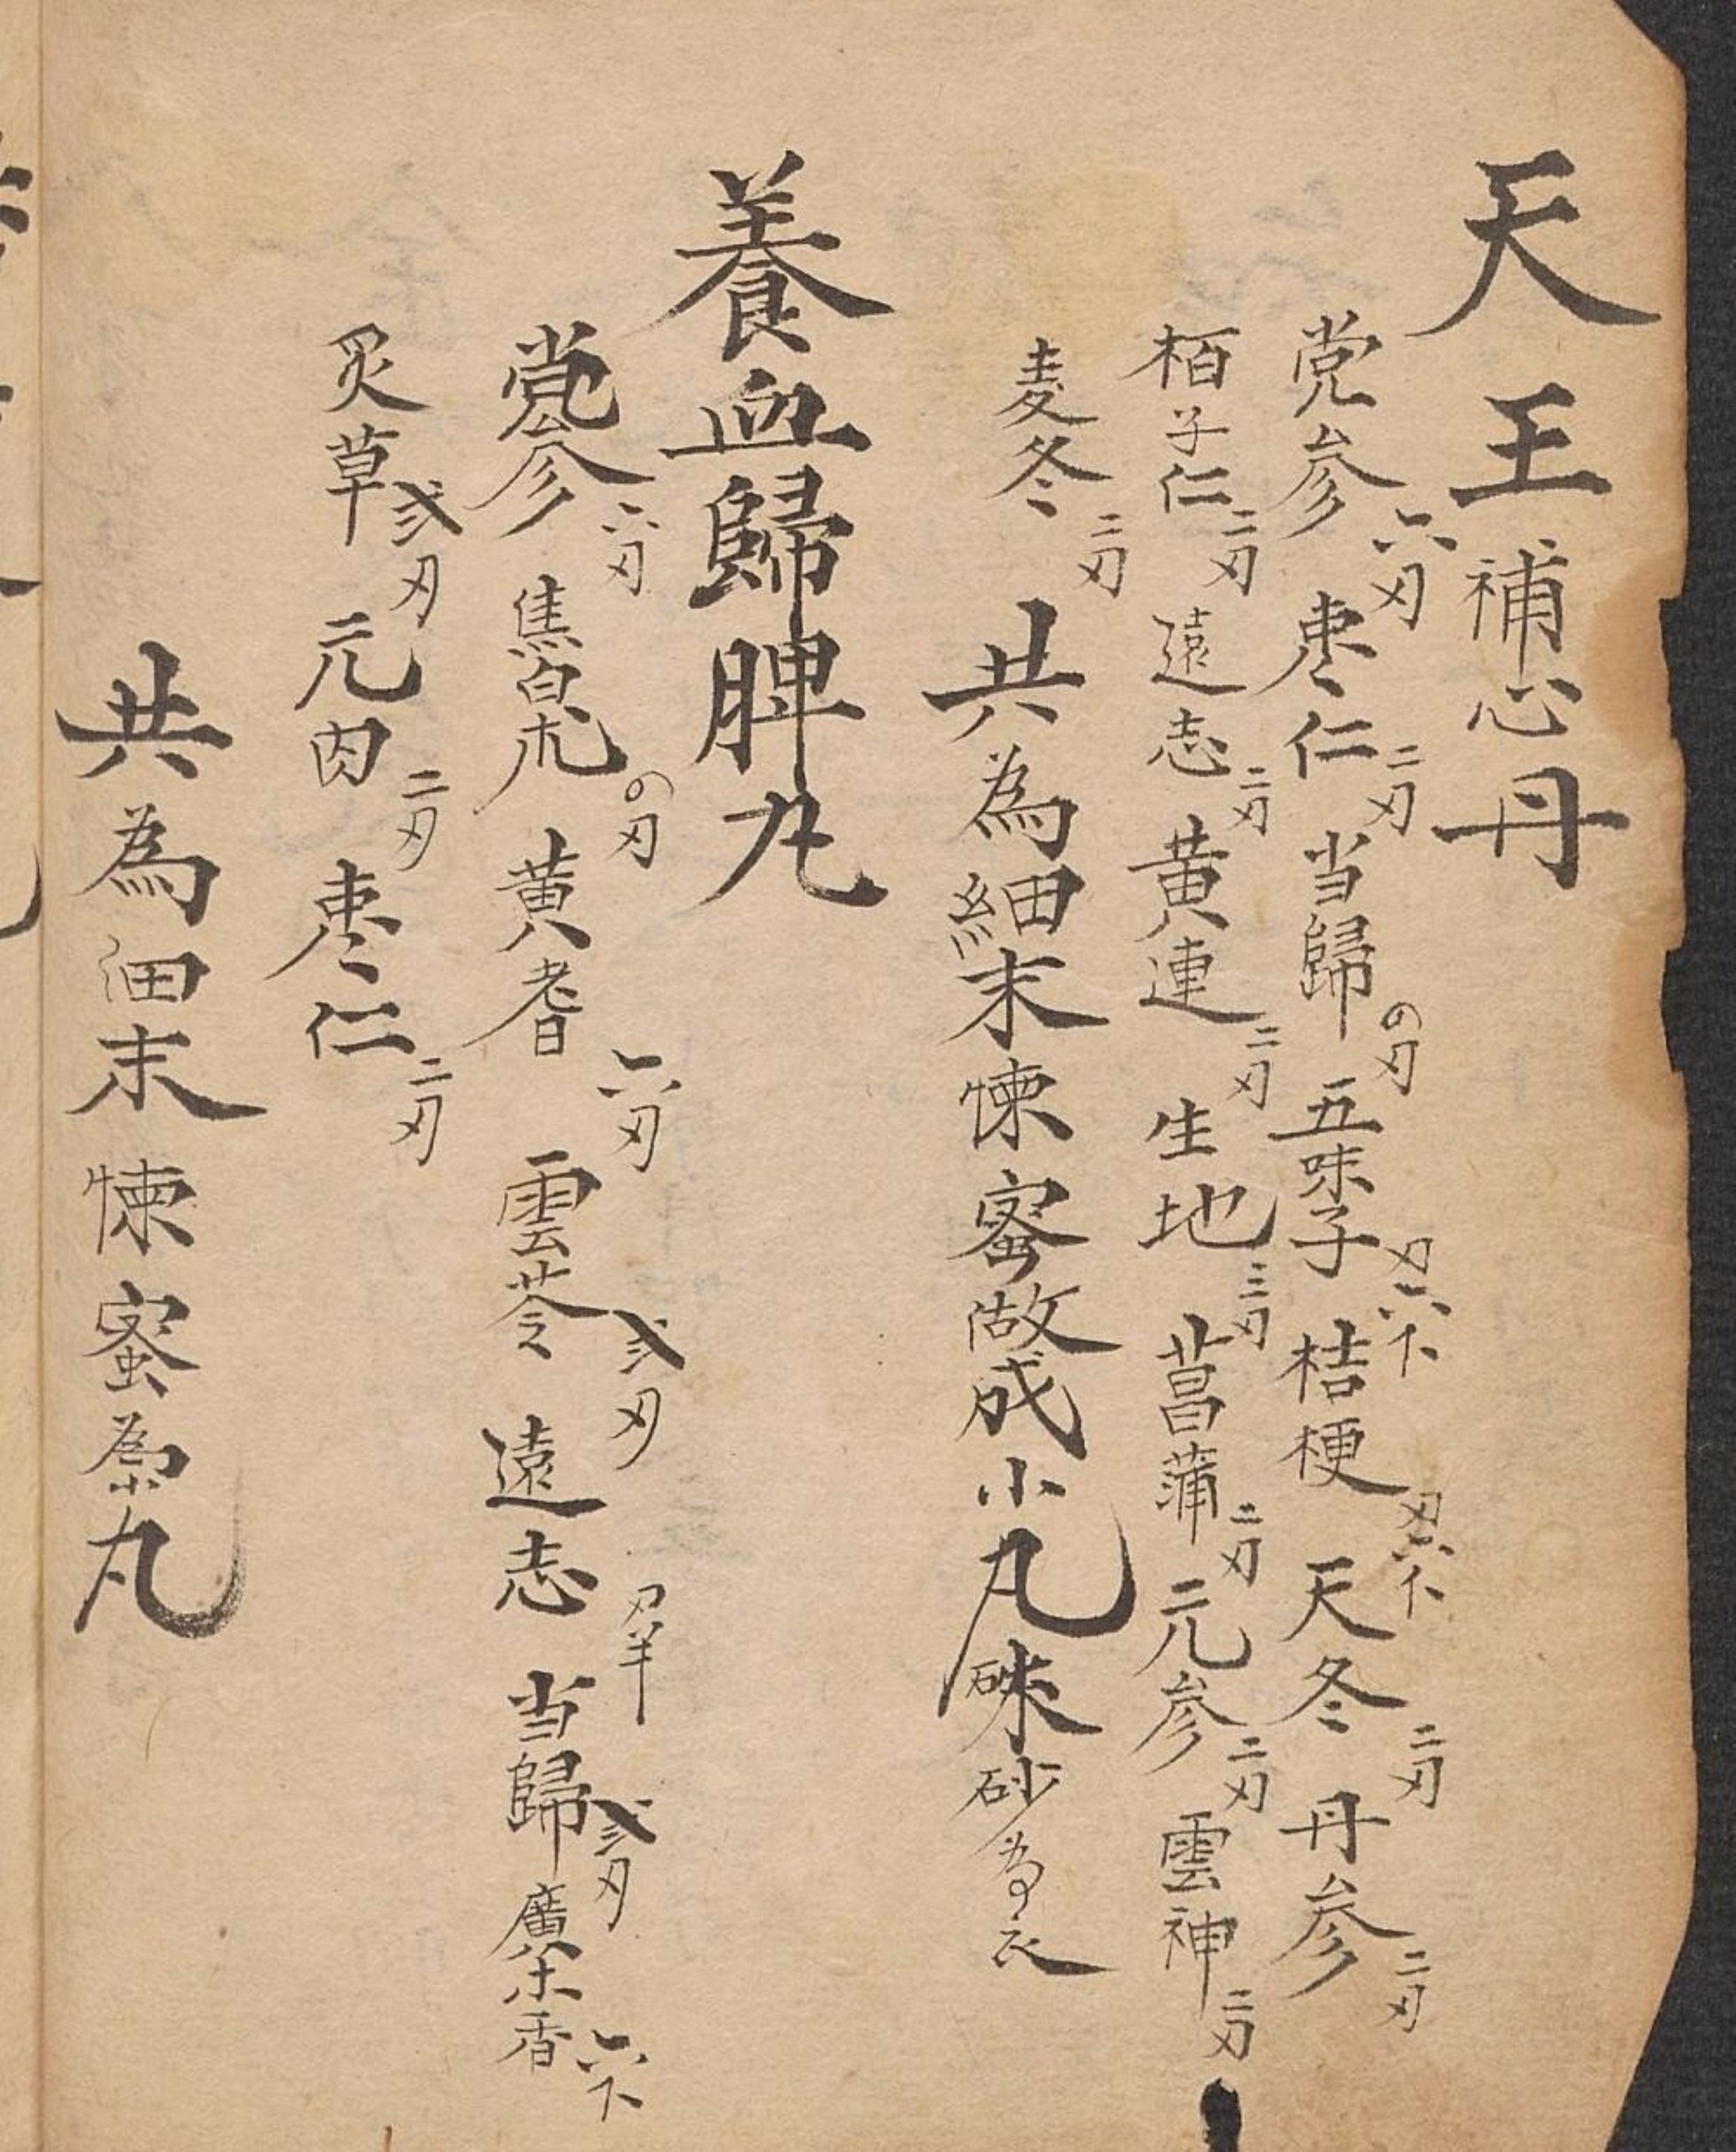 天王補心丹
党参六刄 枣仁二刄 当歸の刄 五味子刄六卜 桔梗刄六卜 天冬二刄 丹参二刄
栢子仁二刄 遠志二刄 黄連二刄 生地三刄 菖蒲二刄 元参二刄 雲神二刄
麦冬二刄 共為細末悚蜜做成小丸硃砂為衣
養血歸脾丸
党参六刄 焦白朮の刄 黄耆六刄 雲苓弍刄 遠志刄半 当歸弍刄 廣木香六卜
炙草弍刄 元肉二刄 枣仁二刄
共為細末悚蜜為丸